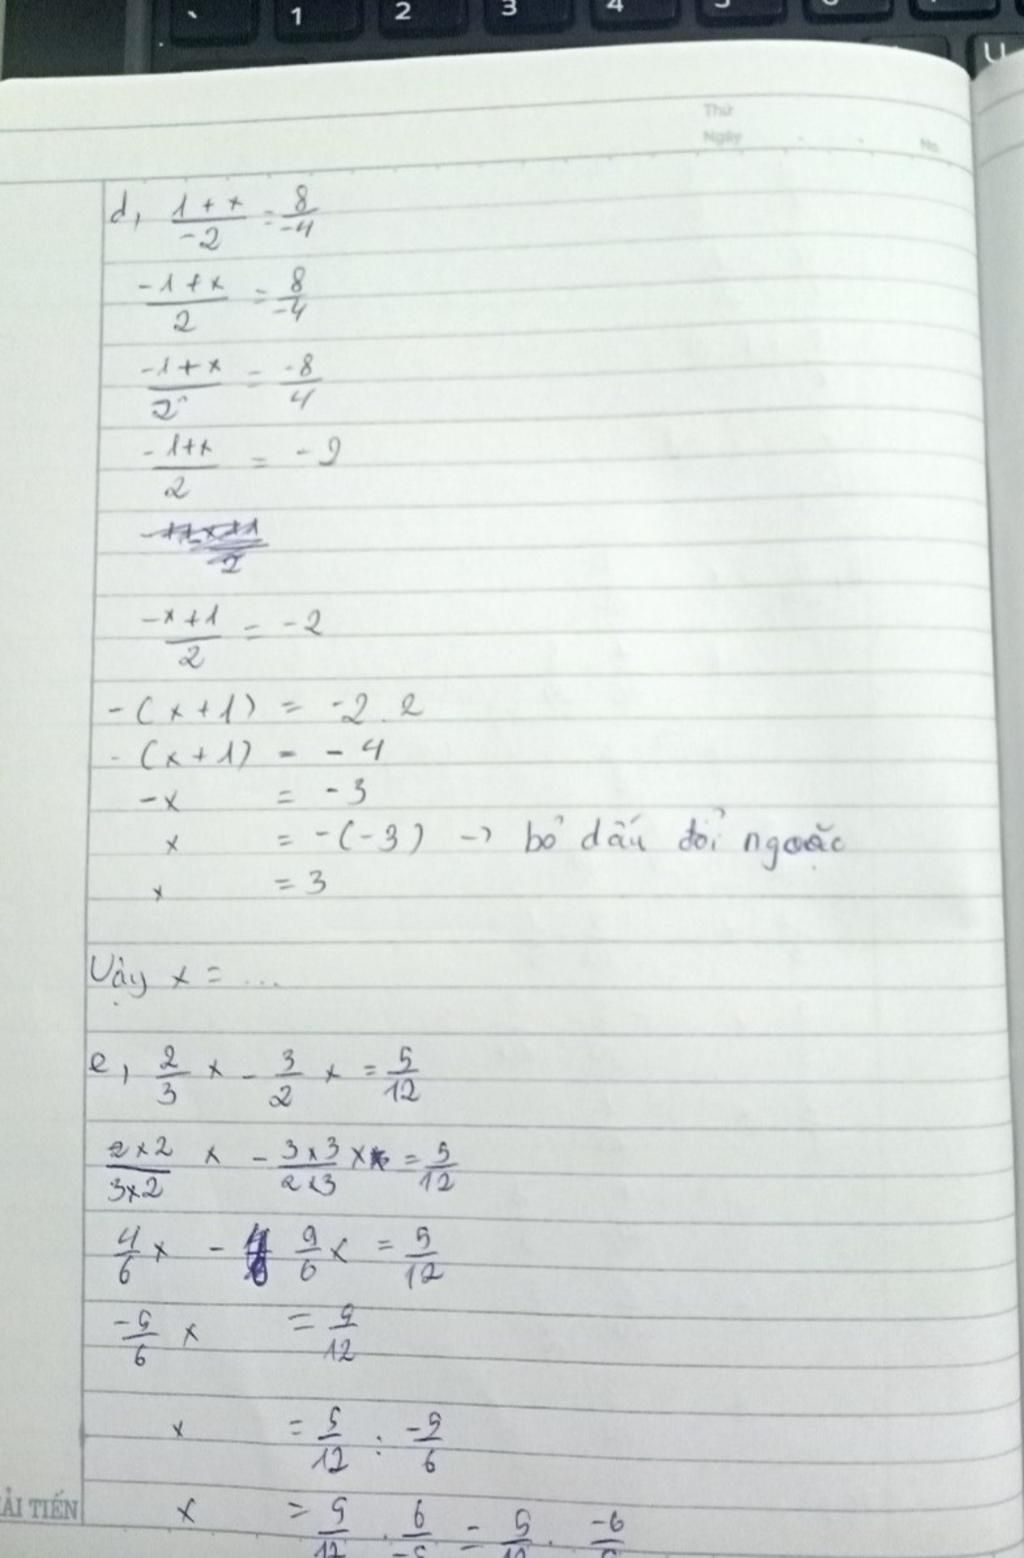 ` 1 2 3 4
U
Thứ
Ngày
No.
d, (1 + x)/(-2) = 8/(-4)
(-1 + x)/2 = 8/(-4)
(-1 + x)/2 = -8/4
(-1+x)/2 = -2
(-x+1)/2 = -2
-(x+1) = -2.2
-(x+1) = -4
-x = -3
x = -(-3) → bỏ dấu đổi ngoặc
x = 3
Vậy x = ...
e, 2/3 x - 3/2 x = 5/12
(2×2)/(3×2) x - (3×3)/(2×3) x = 5/12
4/6 x - 9/6 x = 5/12
-5/6 x = 5/12
x = 5/12 : -5/6
ẢI TIẾN x = 5/12 . 6/-5 = 5/12 . -6/5